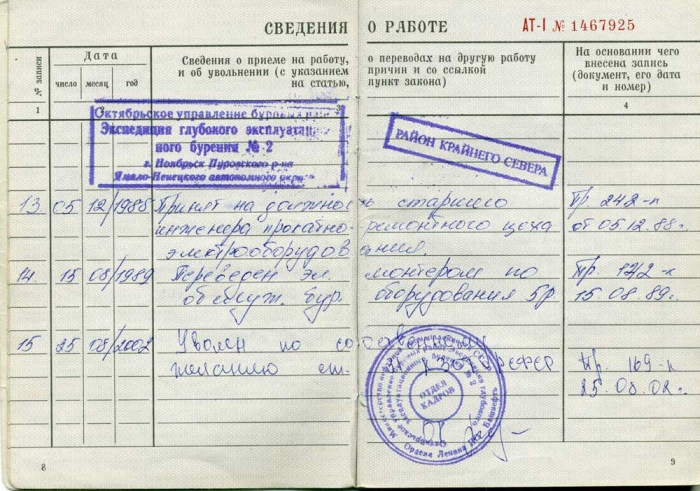 СВЕДЕНИЯ О РАБОТЕ
АТ-I № 1467925
№ записи
Дата
число месяц год
Сведения о приеме на работу, о переводах на другую работу
и об увольнении (с указанием причин и со ссылкой
на статью, пункт закона)
На основании чего
внесена запись
(документ, его дата
и номер)
1 3 4
Октябрьское управление буровых
Экспедиция глубокого эксплуатацион-
ного бурения № 2
г. Ноябрьск Пуровского р-на
Ямало-Ненецкого автономного округа
РАЙОН КРАЙНЕГО СЕВЕРА
13 05 12/1988 Принят на должность старшего Пр. 242-к
инженера прокатно-ремонтного цеха от 05.12.88г.
электрооборудования.
14. 15 08/1989 Переведен эл. монтером по Пр. 172-к
обслуж. бур. оборудования 5р 15.08.89г.
15 25 08/2002 Уволен по собственному
желанию ст. Пр. 169-к
25.08.02г.
ОТДЕЛ
КАДРОВ
Ордена Ленина
8 9